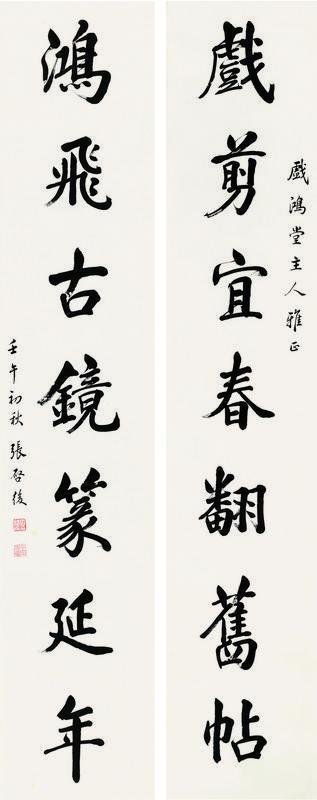 戲鴻堂主人雅正
戲剪宜春翻舊帖
鴻飛古鏡篆延年
壬午初秋張啓後